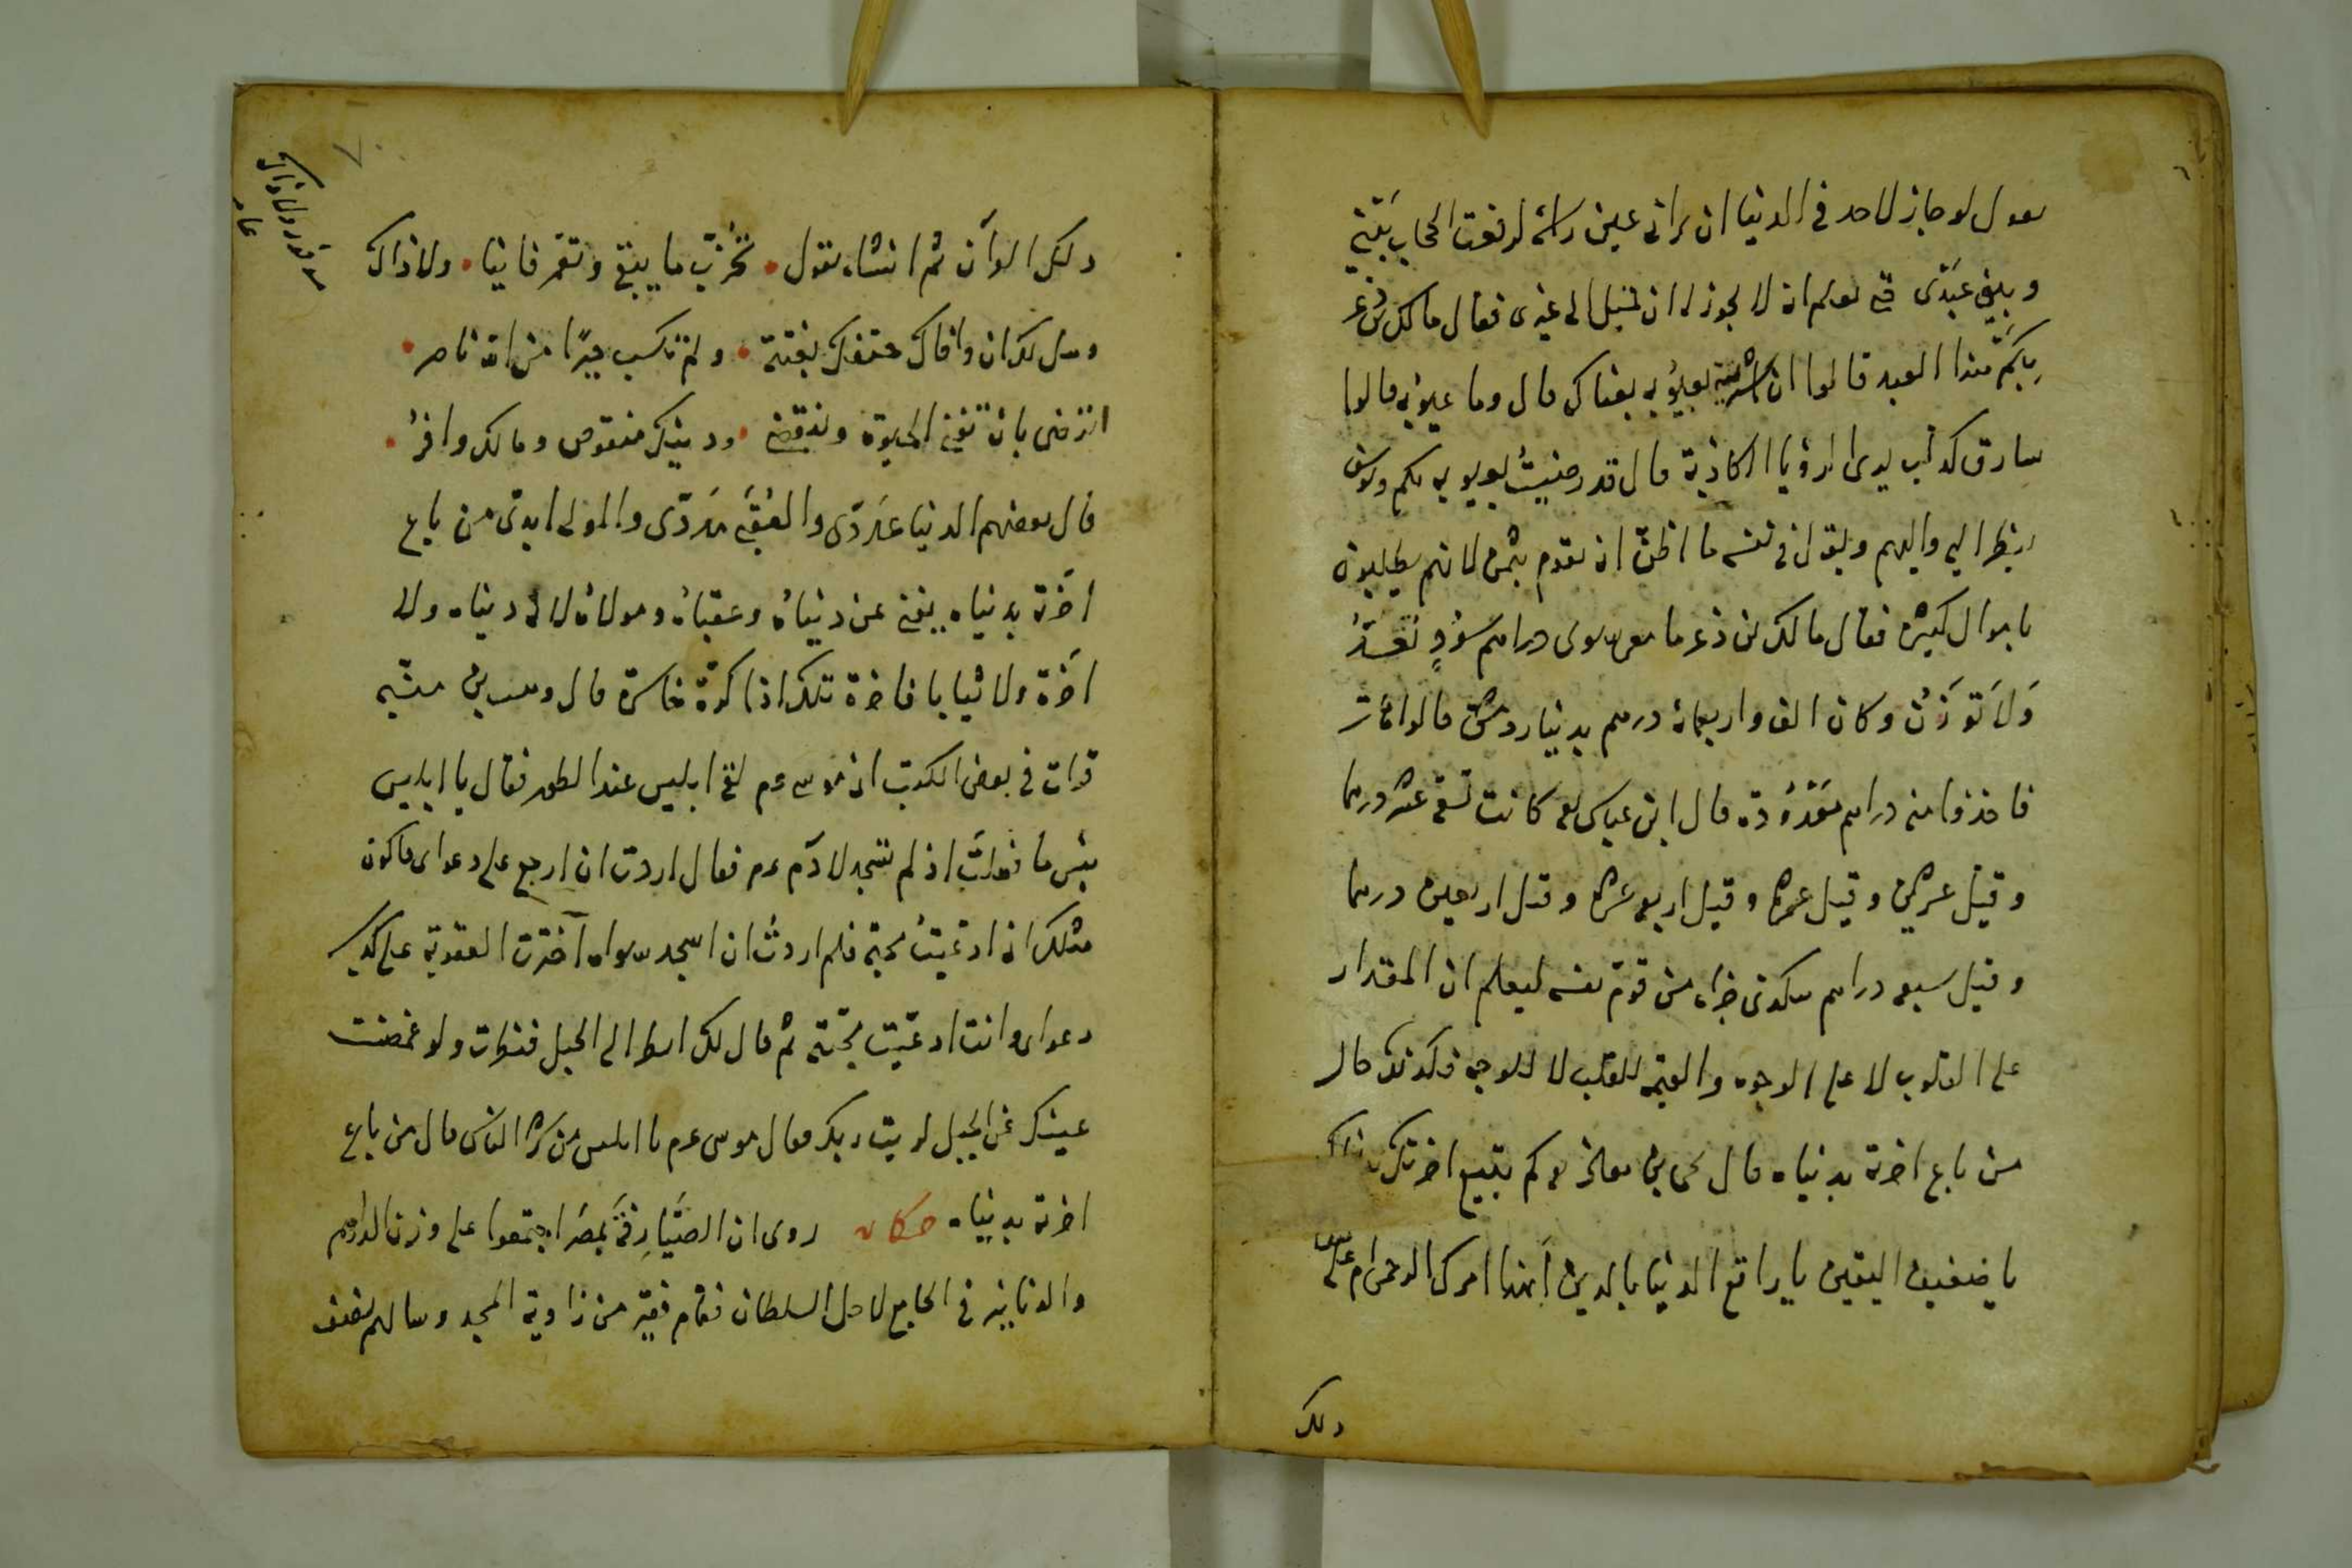 يقول لو جاز لاحد في الدنيا ان يراني بعين راسه لرفعت الحجاب بيني
وبين عبدى حتى يعلم انه لا يجوز له ان يميل الى غيرى فقال مالك بن ذعر
بِكَم هذا العبد قالوا ان اشتريته بعيوبه بعناك قال وما عيوبه قالوا
سارق كذاب يرى الرؤيا الكاذبة قال قد رضيتُ بعيوبه بكم ويوسف
ينظر اليه واليهم ويقول في نفسه ما اظنّ ان يقوم بثمني لانهم يطلبون
باموال كثيرة فقال مالك بن ذعر ما معى سوى دراهم سودٍ تُعَدُّ
وَلاَ تُوزَنُ وكان الف واربعمائة درهم بدينار دمشق قالوا هات
فاخذوا منه دراهم مَعْدُودة قال ابن عباس كانت تسعة عشر درهما
وقيل عشرين وقيل عشرة وقيل اربعة عشر وقيل اربعين درهما
وقيل سبعة دراهم ليكون جزاء من قوّم نفسه ليعلم ان المقدار
على القلوب لا على الوجوه والقيمة للقلب لا للوجه فكذلك حال
من باع اخرته بدنياه قال يحيى بن معاذ كم تبيع اخرتك بدنياك
يا ضعيف اليقين يا راقع الدنيا بالدين أبهذا امرك الرحمن ام على
ذلك
ذلك القرآن ثم انشاء يقول تُخرّبُ ما يبقى وتعمر فانيا ولا ذاك
وهل لك ان وافاك حتفك بغتة ولم تكسب خيرًا من الله ناصر
اترضى بان تفنى الحيوة وتنقضي ودينك منقوص ومالك وافرُ
قال بعضهم الدنيا عَدَدّى والعُقْبَى مَدَدّى والمولى ابدىّ من باع
اخرته بدنياه يفنى عن دنياهُ وعقباهُ ومولاهُ لا له دنياه ولا
اخرة ولا ثيابا فاخرة تلك اذا كرّة خاسرة قال وهب بن منبّه
قرات في بعض الكتب ان موسى عم لقى ابليس عند الطور فقال يا ابليس
بئس ما فعلتَ اذ لم تسجد لآدم عم فقال اردت ان ارجع على دعواى فاكون
مثلك انى ادعيتُ محبته فلم اردتُ ان اسجد سواه اخترت العقوبة على كذب
دعواى وانت ادعيت محبّته ثم قال لك انظر الى الجبل فنظرت ولو غمضت
عينك عن الجبل لرايت ربك فقال موسى عم يا ابليس من شر الناس قال من باع
اخرته بدنياه حكاية روى ان الصَّيَارِفَةَ بمصر اجتمعوا على وزن الدراهم
والدنانير في الجامع لاجل السلطان فقام فقير من زاوية المسجد وسالهم بنصف